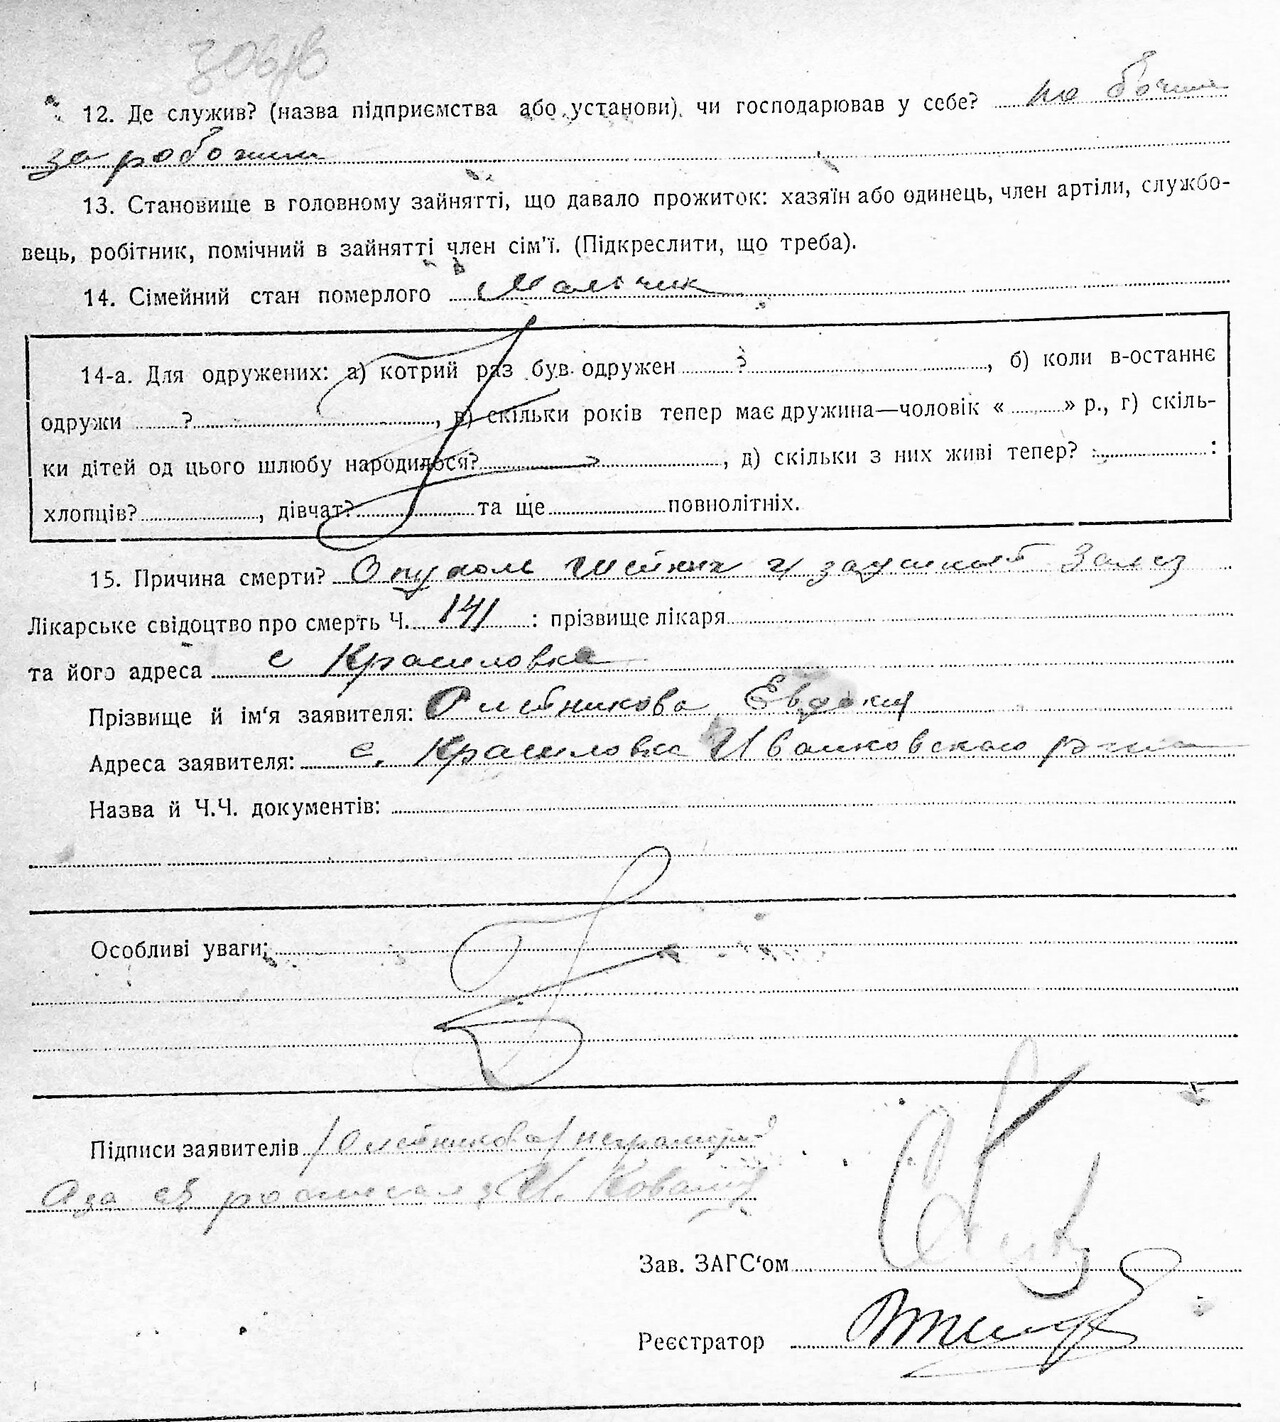 12. Де служив? (назва підприємства або установи) чи господарював у себе? на
13. Становище в головному зайнятті, що давало прожиток: хазяїн або одинець, член артіли, службо-
вець, робітник, помічний в зайнятті член сім'ї. (Підкреслити, що треба).
14. Сімейний стан померлого Мальчик
14-а. Для одружених: а) котрий раз був одружен ?, б) коли в-останнє
одружи ?, в) скільки років тепер має дружина—чоловік « » р., г) скіль-
ки дітей од цього шлюбу народилося?, д) скільки з них живі тепер? :
хлопців?, дівчат? та ще повнолітніх.
15. Причина смерти? Опухоль шейных и заушных Залез
Лікарське свідоцтво про смерть Ч. 141 : прізвище лікаря
та його адреса с Красиловка
Прізвище й ім'я заявителя: Олейникова Евдокия
Адреса заявителя: с. Красиловка Иванковского р-на
Назва й Ч.Ч. документів:
Особливі уваги:
Підписи заявителів /Олейникова/ неграмотная
А за ея росписался И.
Зав. ЗАГС'ом
Реєстратор